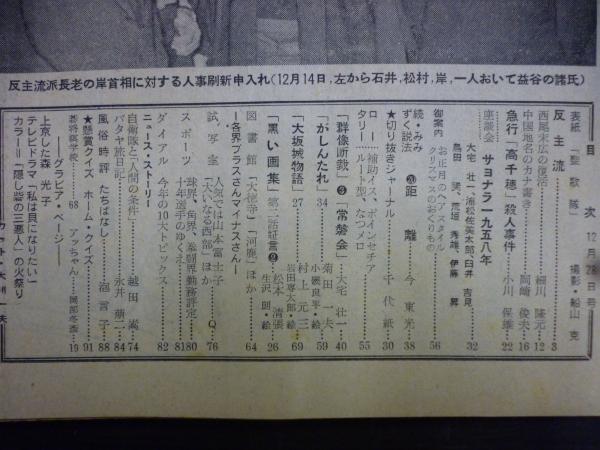 反主流派長老の岸首相に対する人事刷新申入れ(12月14日,左から石井,松村,岸,一人おいて益谷の諸氏)
目次 12月28日号
表紙「聖歌隊」 撮影・船山克
反主流 3
西尾末広の復活 細川隆元 12
中国地名のカナ書き 岡崎俊夫 16
急行「高千穂」殺人事件 小川保雄 22
座談会 サヨナラ一九五八年 32
大宅壮一、浦松佐美太郎、臼井吉見
島田一男、荒垣秀雄、伊藤昇
御案内 お正月のヘアスタイル
クリスマスのおくりもの 56
続・みみずく説法 ⑳ 距離 今東光 38
★切り抜きジャーナル 千代紙 30
ロータリー 補助イス、ポインセチア
ルート型、なつメロ 55
「群像断裁」③「常磐会」 大宅壮一 40
「がしんたれ」34 菊田一夫
小磯良平・絵 59
「大坂城物語」27 村上元三
岩田専太郎・絵 69
「黒い画集」第二話証言② 松本清張
生沢朗・絵 26
図書館「大徳寺」「河鹿」ほか 64
―各界プラスさんマイナスさん―
試写室 人気では山本富士子
「大いなる西部」ほか Q 76
スポーツ 球界、角界、拳闘界勤務評定 80
十年選手のゆくえ 81
ダイアル 今年の10大トピックス 82
ニュース・ストーリー
自衛隊と「人間の条件」 越田嵩 74
パタヤ旅日記 永井萠二 84
風俗時評 たちばなし 泡言子 88
★懸賞クイズ ホーム・クイズ 91
碁将棋学校 68 アッちゃん 岡部冬彦 19
―グラビア・ページ―
上京した森光子
テレビドラマ「私は貝になりたい」
カラー=「隠し砦の三悪人」の火祭り